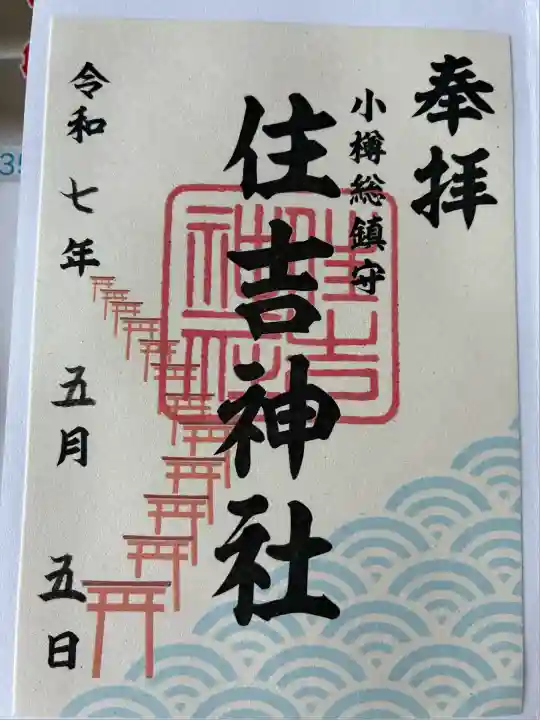 奉拝
小樽総鎮守
住吉神社
住吉神社
令和七年 五月 五日
35